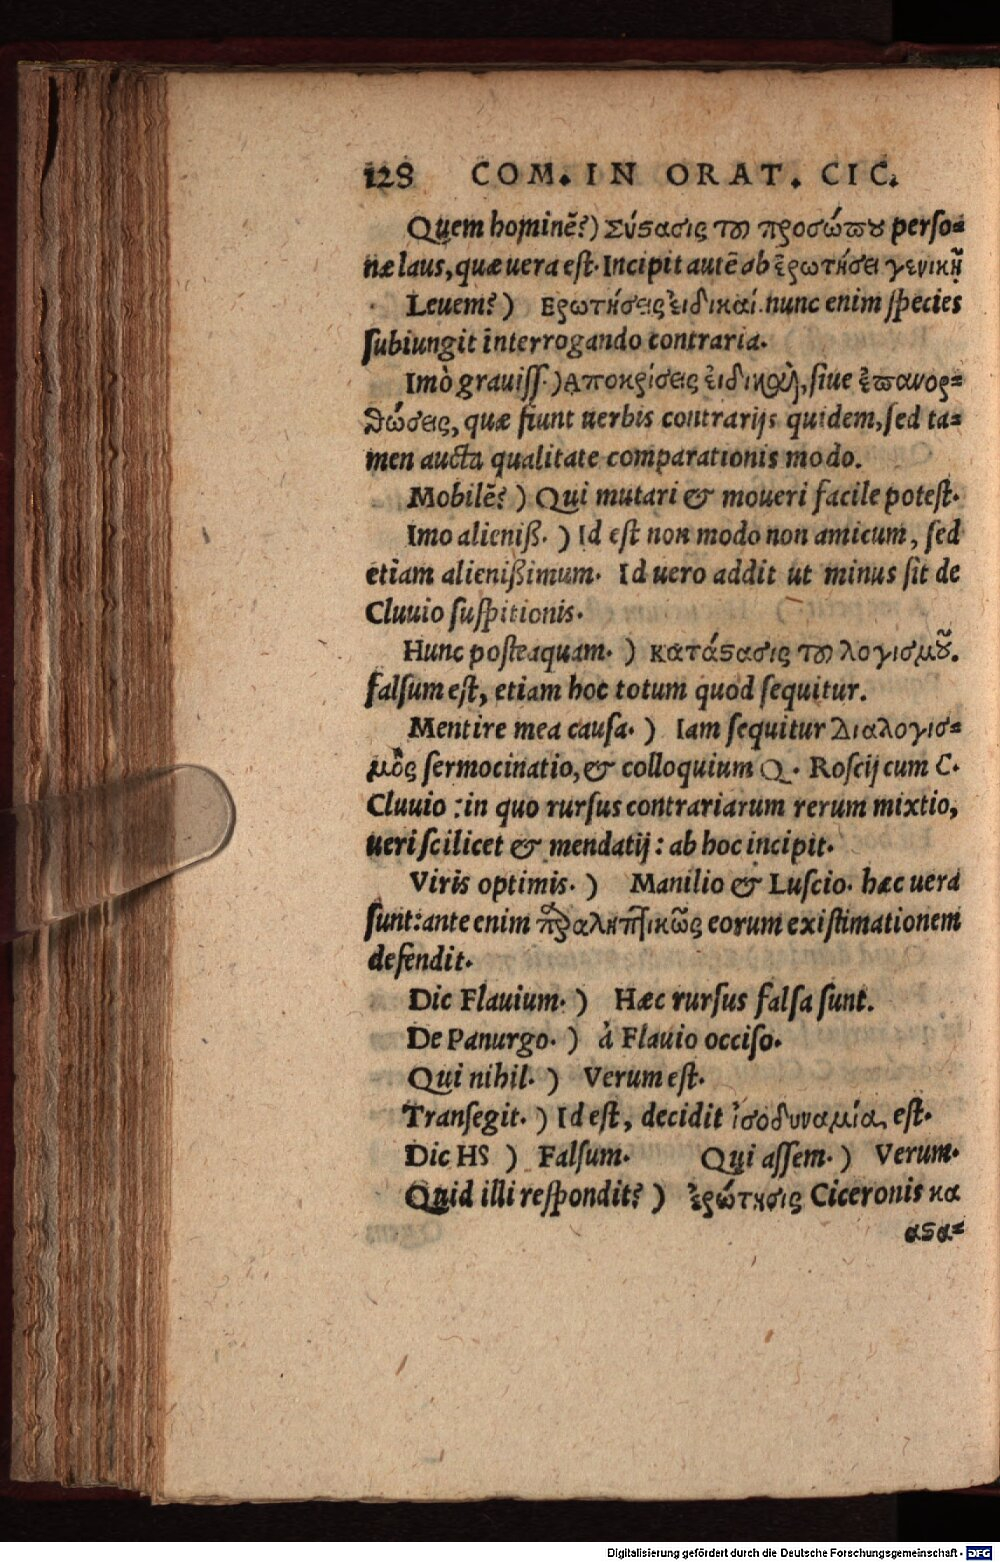 128 COM. IN ORAT. CIC.
Quem hominẽ?) Σύςασις τȣ προσώπȣ perso=
næ laus, quæ uera est. Incipit autẽ ab ἐρωτήσει γενικῇ
Leuem?) Ερωτήσεις ἐιδικαί. nunc enim species
subiungit interrogando contraria.
Imò grauiss.) Αποκρίσεις ἐιδικαὶ, siue ἐπανορ=
θώσεις, quæ fiunt uerbis contrarijs quidem, sed ta=
men aucta qualitate comparationis modo.
Mobilẽ?) Qui mutari & moueri facile potest.
Imo alieniß.) Id est non modo non amicum, sed
etiam alienißimum. Id uero addit ut minus sit de
Cluuio suspitionis.
Hunc posteaquam.) κατάςασις τȣ λογισμȣ͂.
falsum est, etiam hoc totum quod sequitur.
Mentire mea causa.) Iam sequitur Διαλογισ=
μὸς sermocinatio, & colloquium Q. Roscij cum C.
Cluuio: in quo rursus contrariarum rerum mixtio,
ueri scilicet & mendatij: ab hoc incipit.
Viris optimis.) Manilio & Luscio. hæc uera
sunt: ante enim προαληπτικῶς eorum existimationem
defendit.
Dic Flauium.) Hæc rursus falsa sunt.
De Panurgo.) à Flauio occiso.
Qui nihil.) Verum est.
Transegit.) Id est, decidit ἰσοδυναμία, est.
Dic HS) Falsum. Qui assem.) Verum.
Quid illi respondit?) ἐρώτησις Ciceronis κα
ασα=
Digitalisierung gefördert durch die Deutsche Forschungsgemeinschaft - DFG